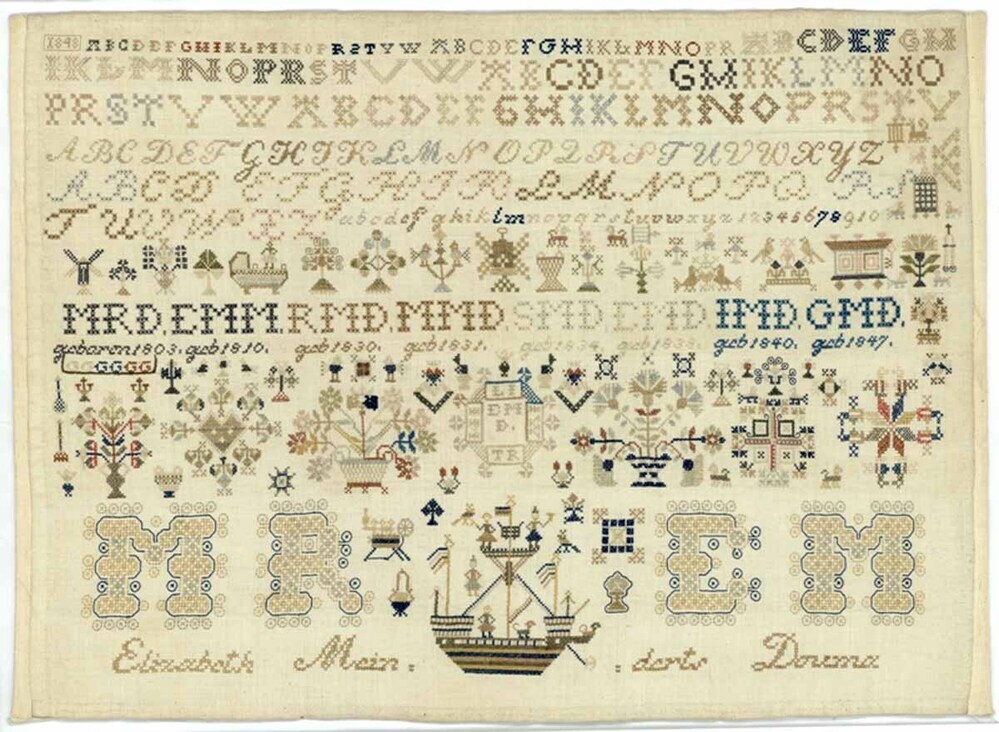 1848 ABCDEFGHIKLMNOPRSTVW ABCDEFGHIKLMNOPR ABCDEFGH
IKLMNOPRSTVW ABCDEFGHIKLMNO
PRSTVW ABCDEFGHIKLMNOPRSTV
W
ABCDEFGHIKLMNOPQRSTUVWXYZ
ABCD EFGHIKLMNOPQ RS
TUVW XZ abcdefghiklmnopqrstuvwxyz 12345678910
MRD. EMM. RMD. MMD. SMD. CMD. IMD. GMD.
geboren 1803. geb 1810. geb 1830. geb 1831. geb 1834. geb 1838. geb 1840. geb 1847.
GGGGG
D.
TR
M R E M
Elizabeth Mein: :derts Douma